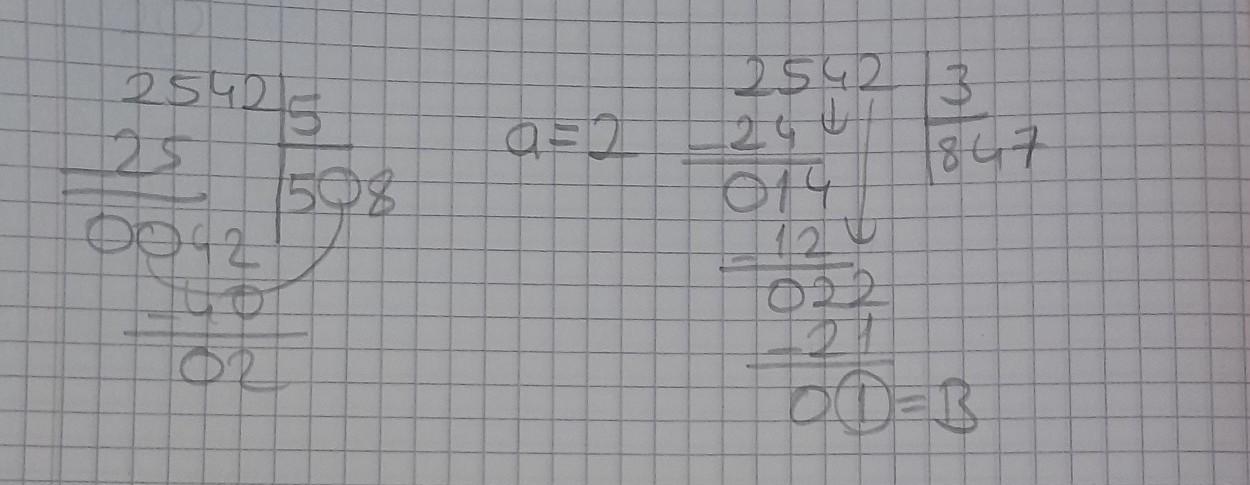 2542 5
- 25
508
0042
- 40
02
a=2
2542 3
- 24
847
014
- 12
022
- 21
01=B